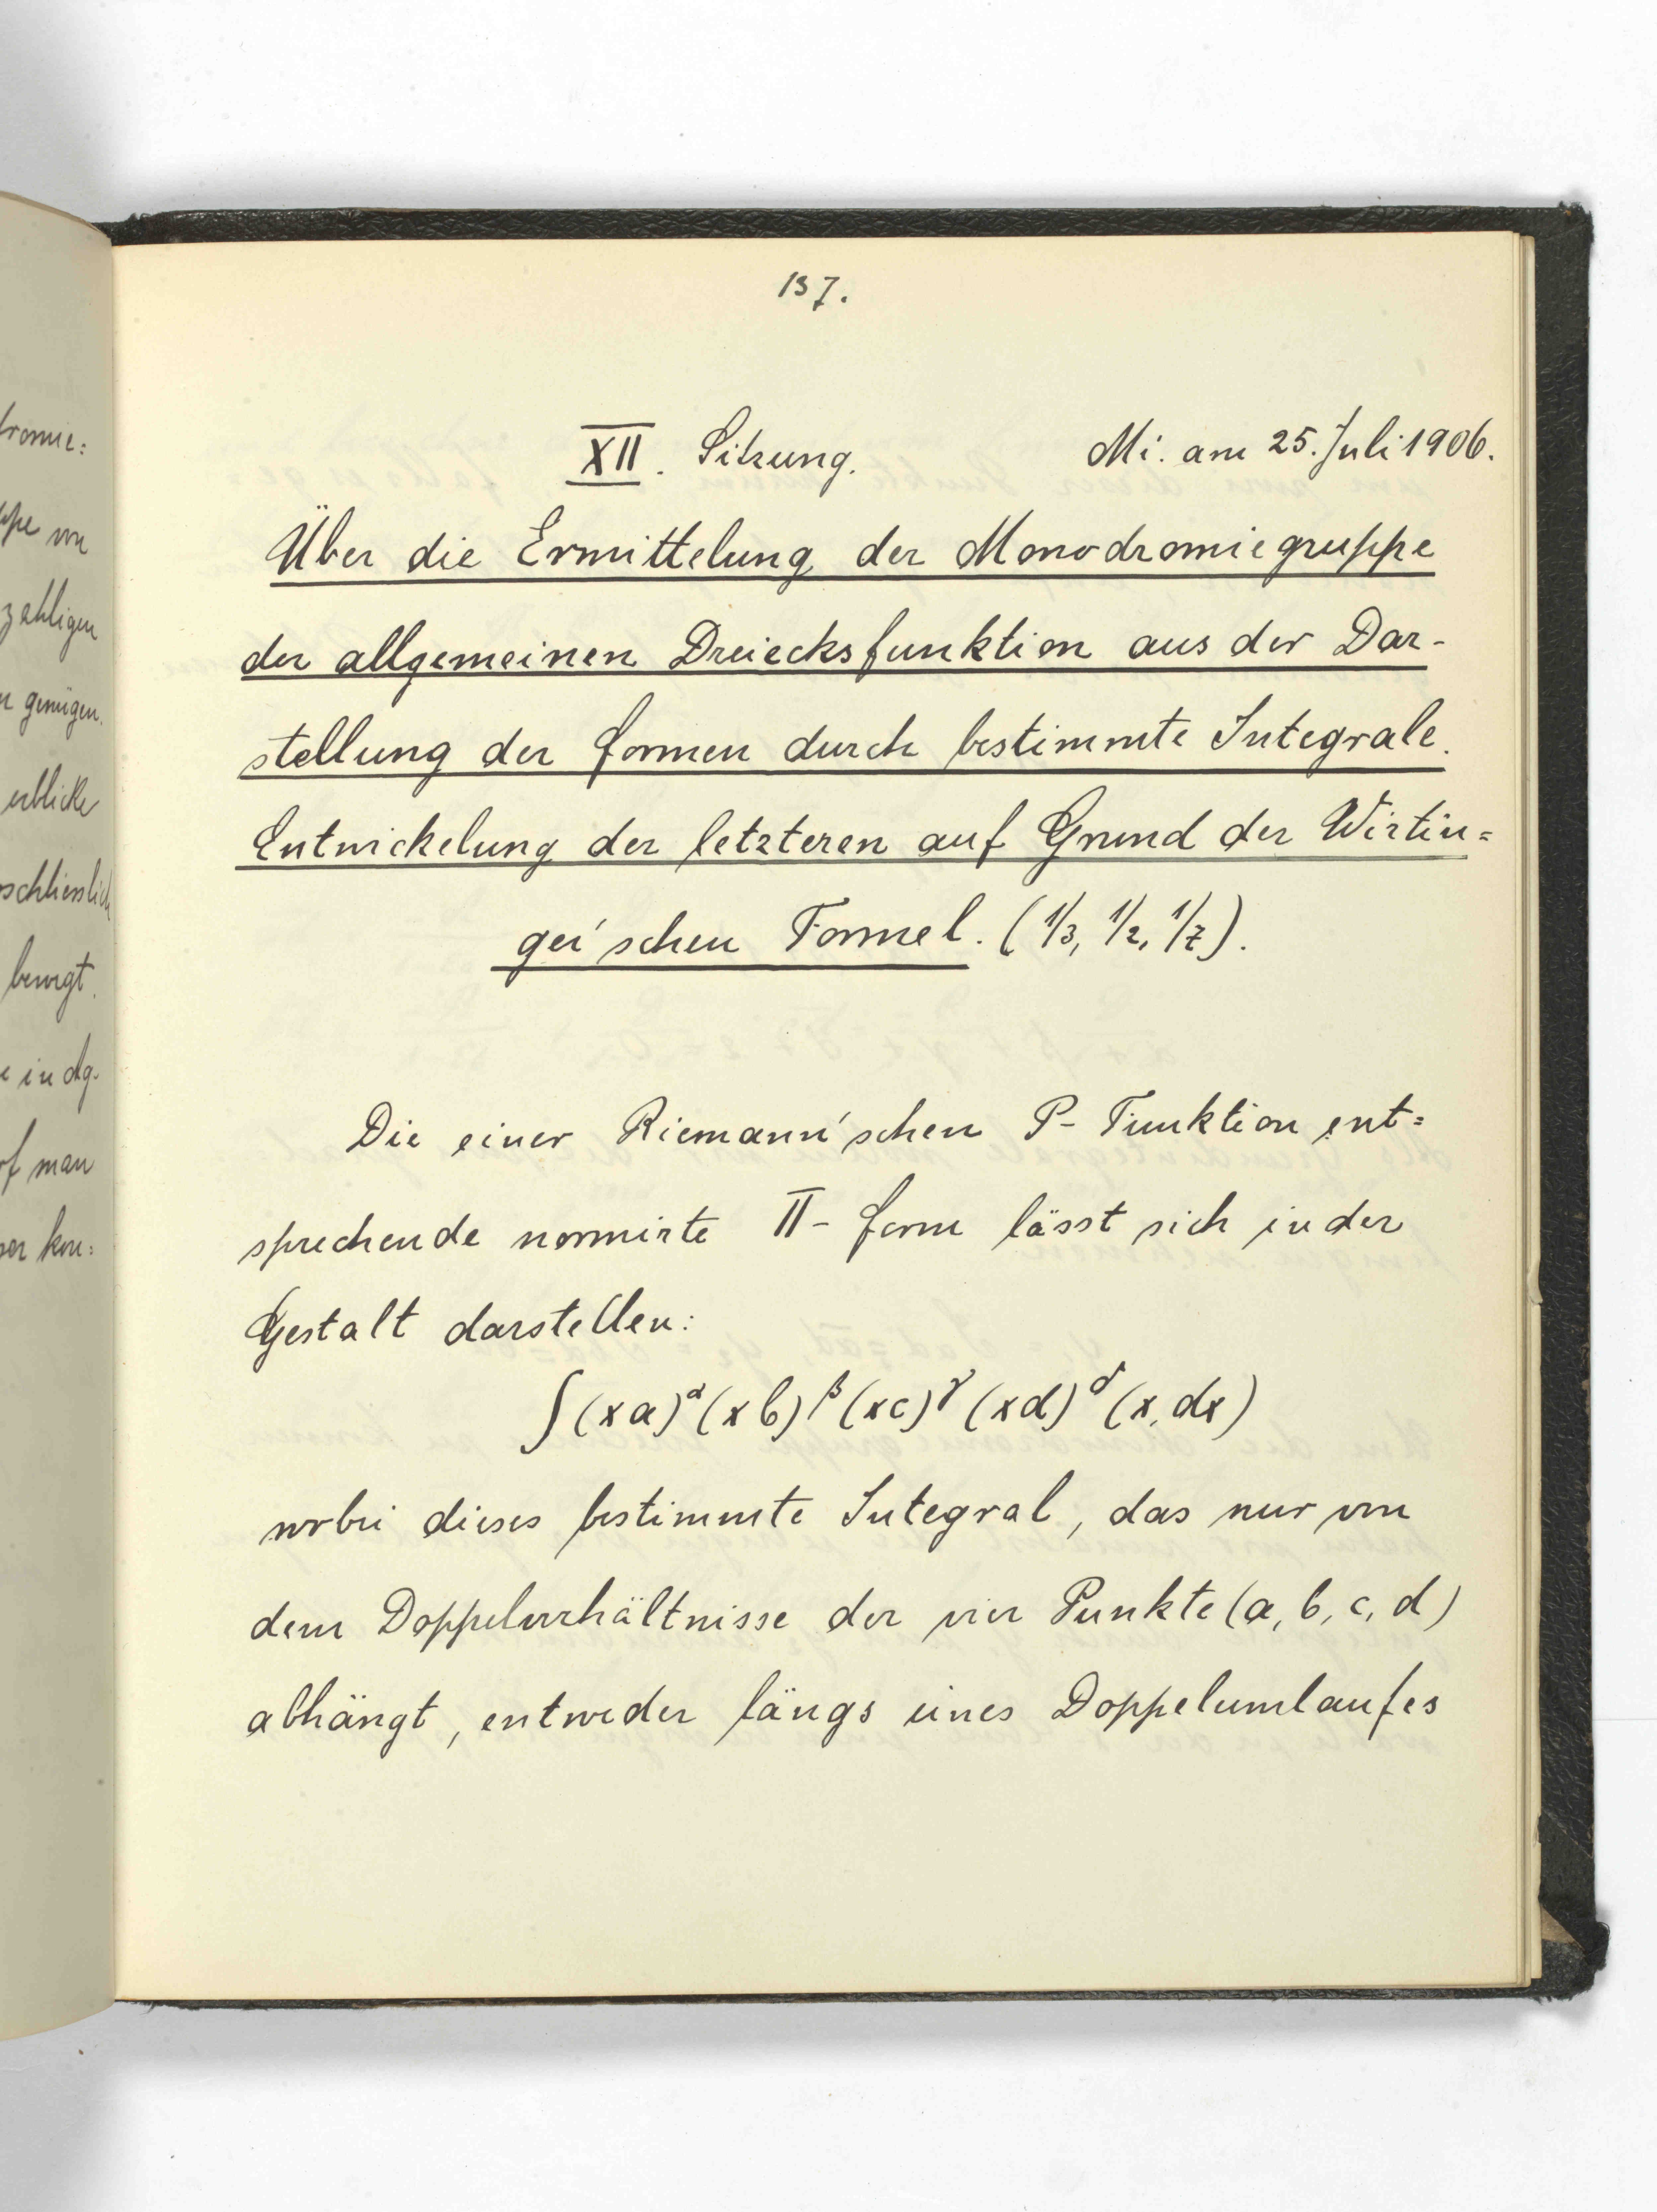 137.
XII. Sitzung. Mi. am 25. Juli 1906.
Über die Ermittelung der Monodromiegruppe
der allgemeinen Dreiecksfunktion aus der Dar-
stellung der Formen durch bestimmte Integrale.
Entwickelung der letzteren auf Grund der Wirtin=
ger'schen Formel. (1/3, 1/2, 1/7).
Die einer Riemann'schen P-Funktion ent=
sprechende normirte Π-Form lässt sich in der
Gestalt darstellen:
∫(xa)^α (xb)^β (xc)^γ (xd)^δ (x, dx)
wobei dieses bestimmte Integral, das nur von
dem Doppelverhältnisse der vier Punkte (a, b, c, d)
abhängt, entweder längs eines Doppelumlaufes
dromie:
ppe von
zahligen
genügen.
erblicke
schliesslich
bewegt.
in dg.
man
kon: